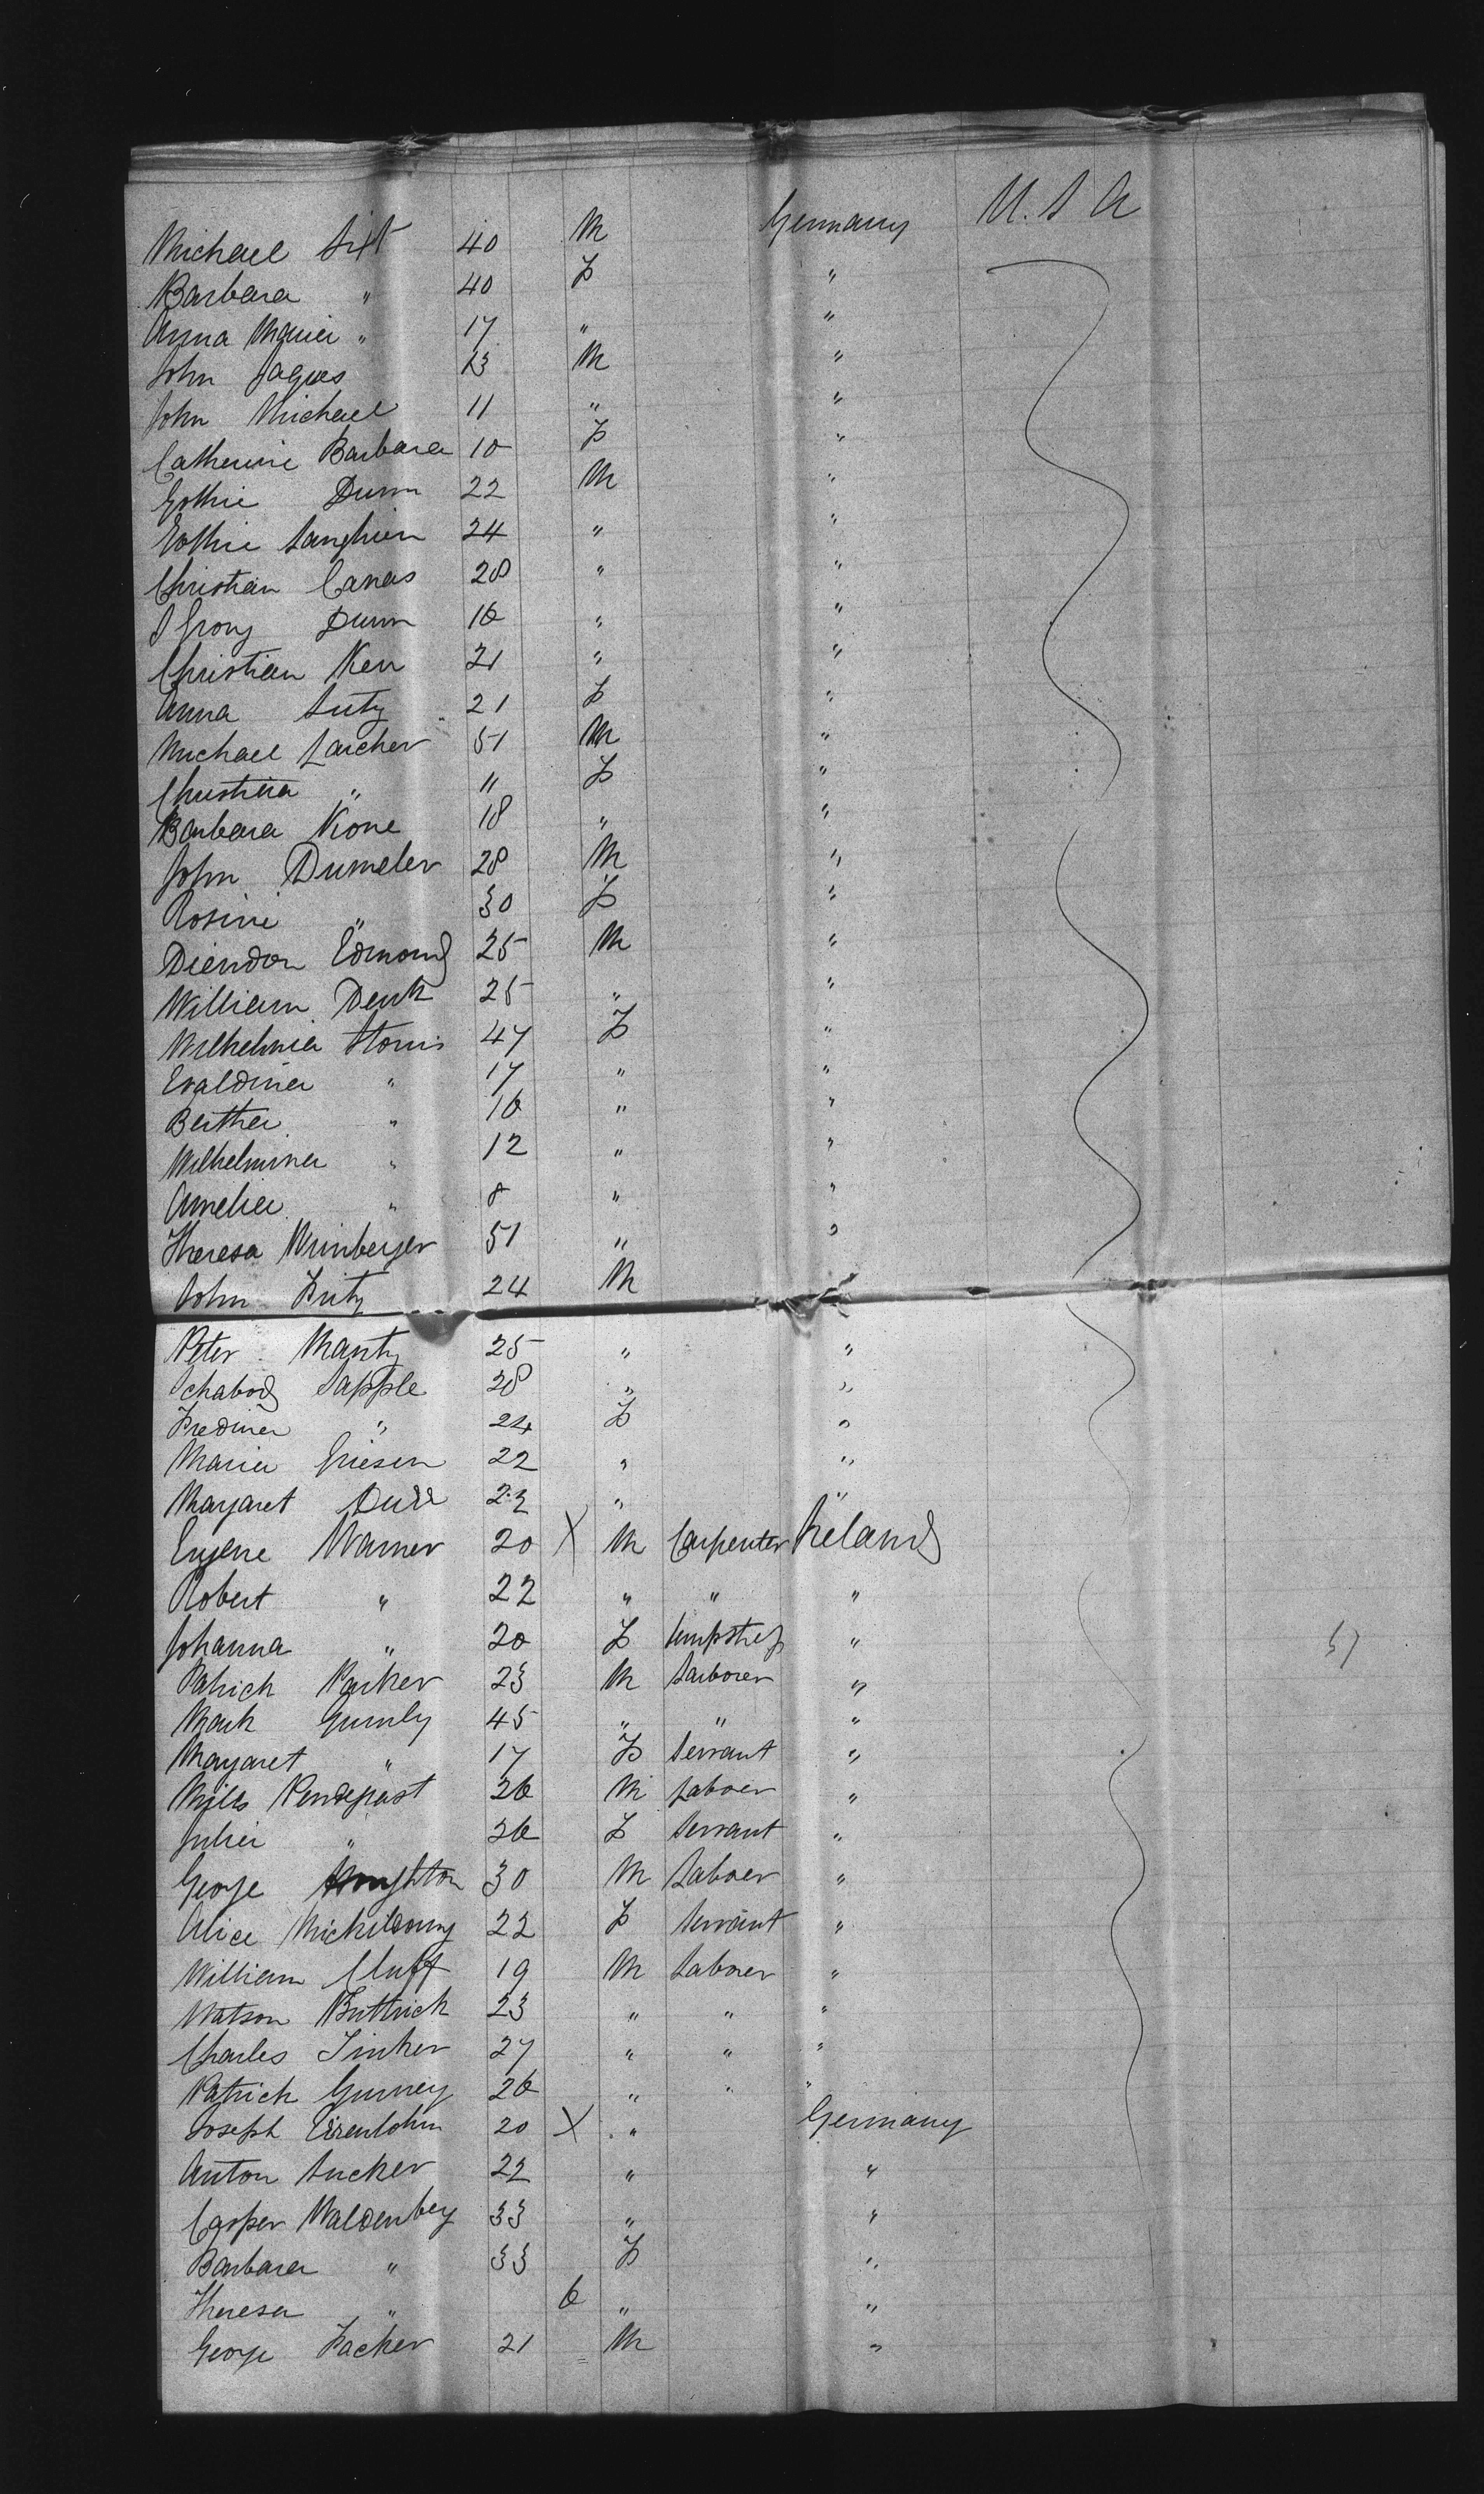 Michael Sixt 40 M Germany U.S A
Barbara " 40 F "
Anna Maria " 17 " "
John Jaques 13 M "
John Michael 11 " "
Catherine Barbara 10 F "
Gothie Durm 22 M "
Gothie 24 " "
Christian Canas 28 " "
Durm 16 " "
Christian Kerr 21 " "
Anna 21 F "
Michael Larcher 51 M "
Christina " " F "
Barbara Kone 18 " "
John Dumeler 28 M "
Rosine " 30 F "
Edmond 25 M "
William Denk 25 " "
Wilhelmia Storris 47 F "
Evaldina " 17 " "
Bertha " 16 " "
Wilhelmina " 12 " "
Amelia " 8 " "
Theresa Wrinberger 51 " "
John Fritz 24 M
Peter Manty 25 " "
Ichabod Sapple 28 " "
Fredina " 24 F "
Maria Griesen 22 " "
Margaret 22 " "
Eugene Warner 20 X M Carpenter Ireland
Robert " 22 " " "
Johanna " 20 F "
Patrick Parker 23 M Larborer "
Mark Gumly 45 " " "
Margaret " 17 F Servant "
Mills Pendepast 26 M Laboer "
Julia " 26 F Servant "
George Houghton 30 M Laboer "
Alice 22 F Servant "
William Cluff 19 M Laborer "
Watson Buttrick 23 " " "
Charles Tinker 27 " " "
Patrick Gurney 26 " " "
Joseph Eisenlohm 20 X " Germany
Anton Sucker 22 " "
Casper Waldenbey 33 " "
Barbara " 33 F "
Theresa " 6 " "
George Packer 21 M "